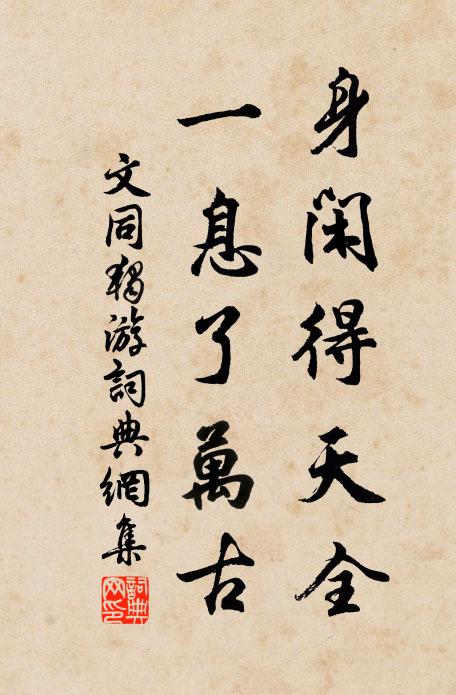 身閑得天全
一息了萬古
文同獨游詞典網集
詞典
网印